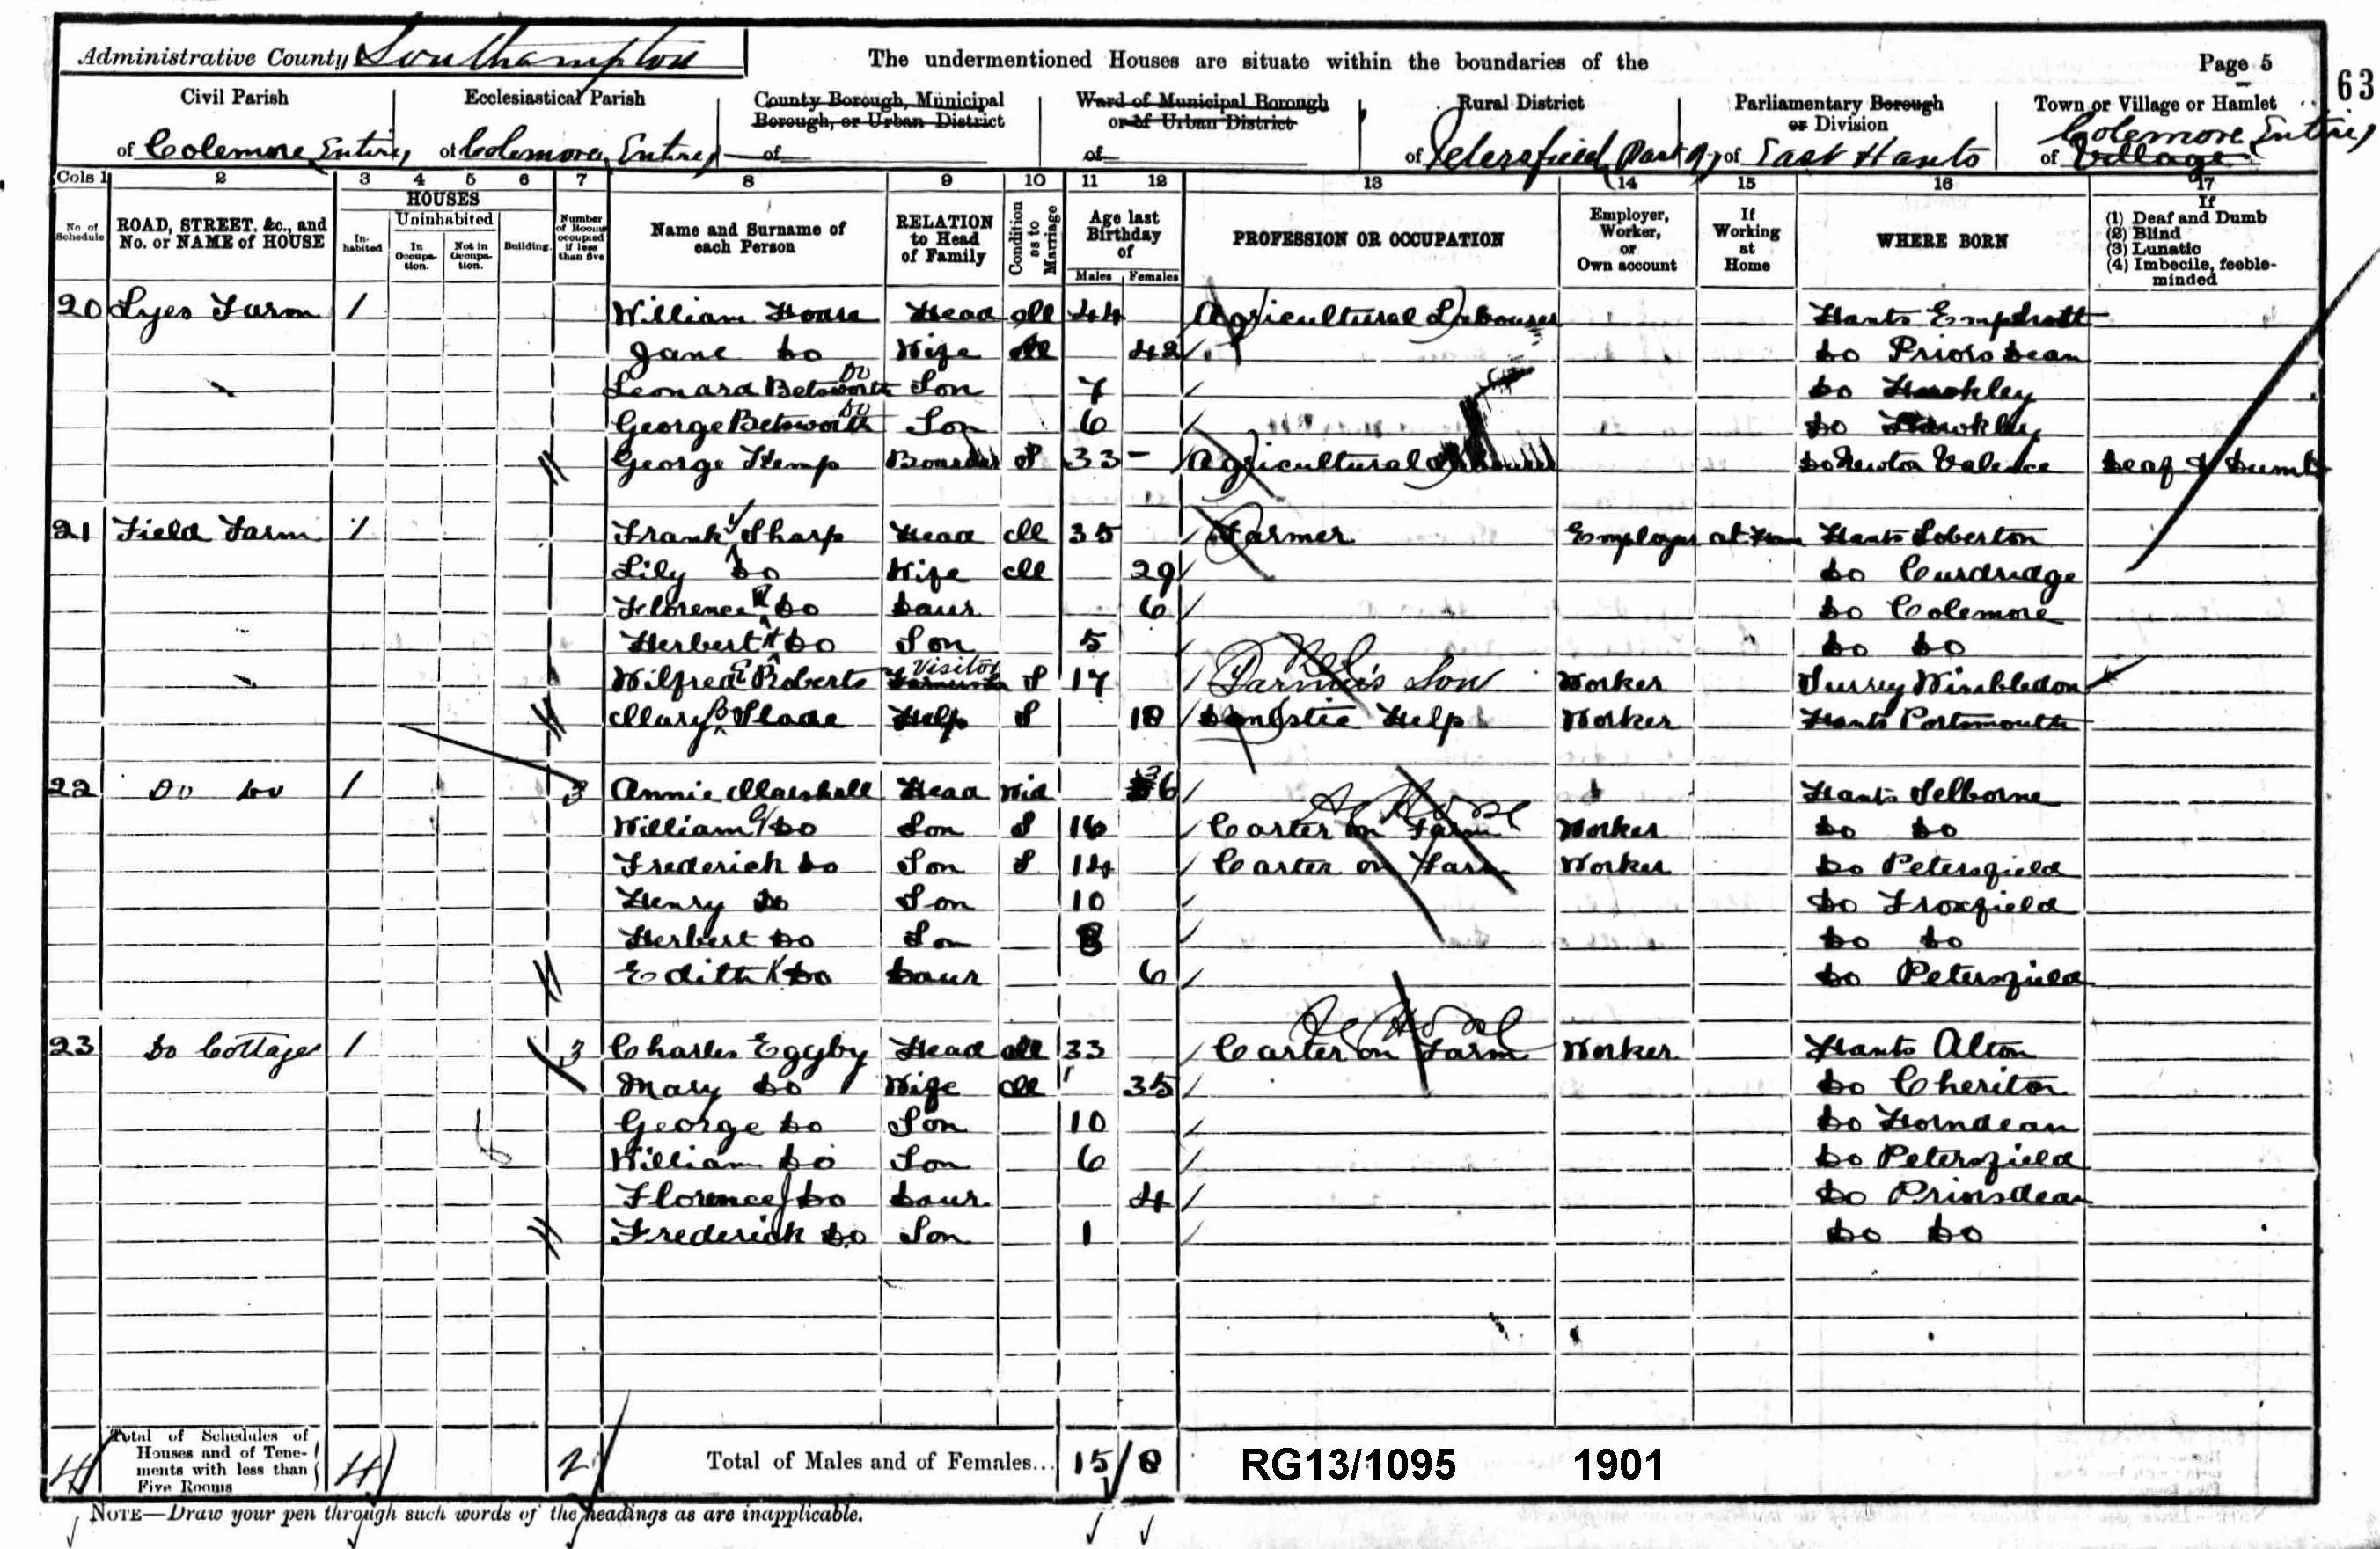 Administrative County Southampton
The undermentioned Houses are situate within the boundaries of the
Page 5
63
Civil Parish
of Colemore Entire
Ecclesiastical Parish
of Colemore Entire
County Borough, Municipal Borough, or Urban District
of
Ward of Municipal Borough or of Urban District
of
Rural District
of Petersfield Part of
Parliamentary Borough or Division
of East Hants
Town or Village or Hamlet
of Village Colemore Entire
Cols 1 2 3 4 5 6 7 8 9 10 11 12 13 14 15 16 17
No. of Schedule
ROAD, STREET, &c., and No. or NAME of HOUSE
HOUSES
Inhabited
Uninhabited
In Occupation.
Not in Occupation.
Building.
Number of Rooms occupied if less than five
Name and Surname of each Person
RELATION to Head of Family
Condition as to Marriage
Age last Birthday of
Males Females
PROFESSION OR OCCUPATION
Employer, Worker, or Own account
If Working at Home
WHERE BORN
If
(1) Deaf and Dumb
(2) Blind
(3) Lunatic
(4) Imbecile, feeble-minded
20 Lyes Farm 1 William Hoare Head M 44 Agricultural Labourer Hants Empshott
Jane Do Wife M 42 Do Priors Dean
Leonard Betsworth Do Son 7 Do Hawkley
George Betsworth Do Son 6 Do Hawkley
George Kemp Boarder S 33 Agricultural Labourer Do Newton Valence Deaf & Dumb
21 Field Farm 1 Frank Sharp Head M 35 Farmer Employer at Home Hants Soberton
Lily Do Wife M 29 Do Curdridge
Florence Do Daur 6 Do Colemore
Herbert H Do Son 5 Do Do
Wilfred E Roberts Visitor S 17 Farmer's Son Worker Surrey Wimbledon
Mary B Slade Help S 18 Domestic Help Worker Hants Portsmouth
22 Do Do 1 3 Annie Marshall Head Wid 36 Hants Selborne
William G Do Son S 16 Carter on Farm Worker Do Do
Frederick Do Son S 14 Carter on Farm Worker Do Petersfield
Henry Do Son 10 Do Froxfield
Herbert Do Son 8 Do Do
Edith Do Daur 6 Do Petersfield
23 Do Cottage 1 3 Charles Eggby Head M 33 Carter on Farm Worker Hants Alton
Mary Do Wife M 35 Do Cheriton
George Do Son 10 Do Horndean
William Do Son 6 Do Petersfield
Florence J Do Daur 4 Do Priorsdean
Frederick Do Son 1 Do Do
4 Total of Schedules of Houses and of Tenements with less than Five Rooms 4 2 Total of Males and of Females... 15 8
RG13/1095 1901
NOTE—Draw your pen through such words of the headings as are inapplicable.